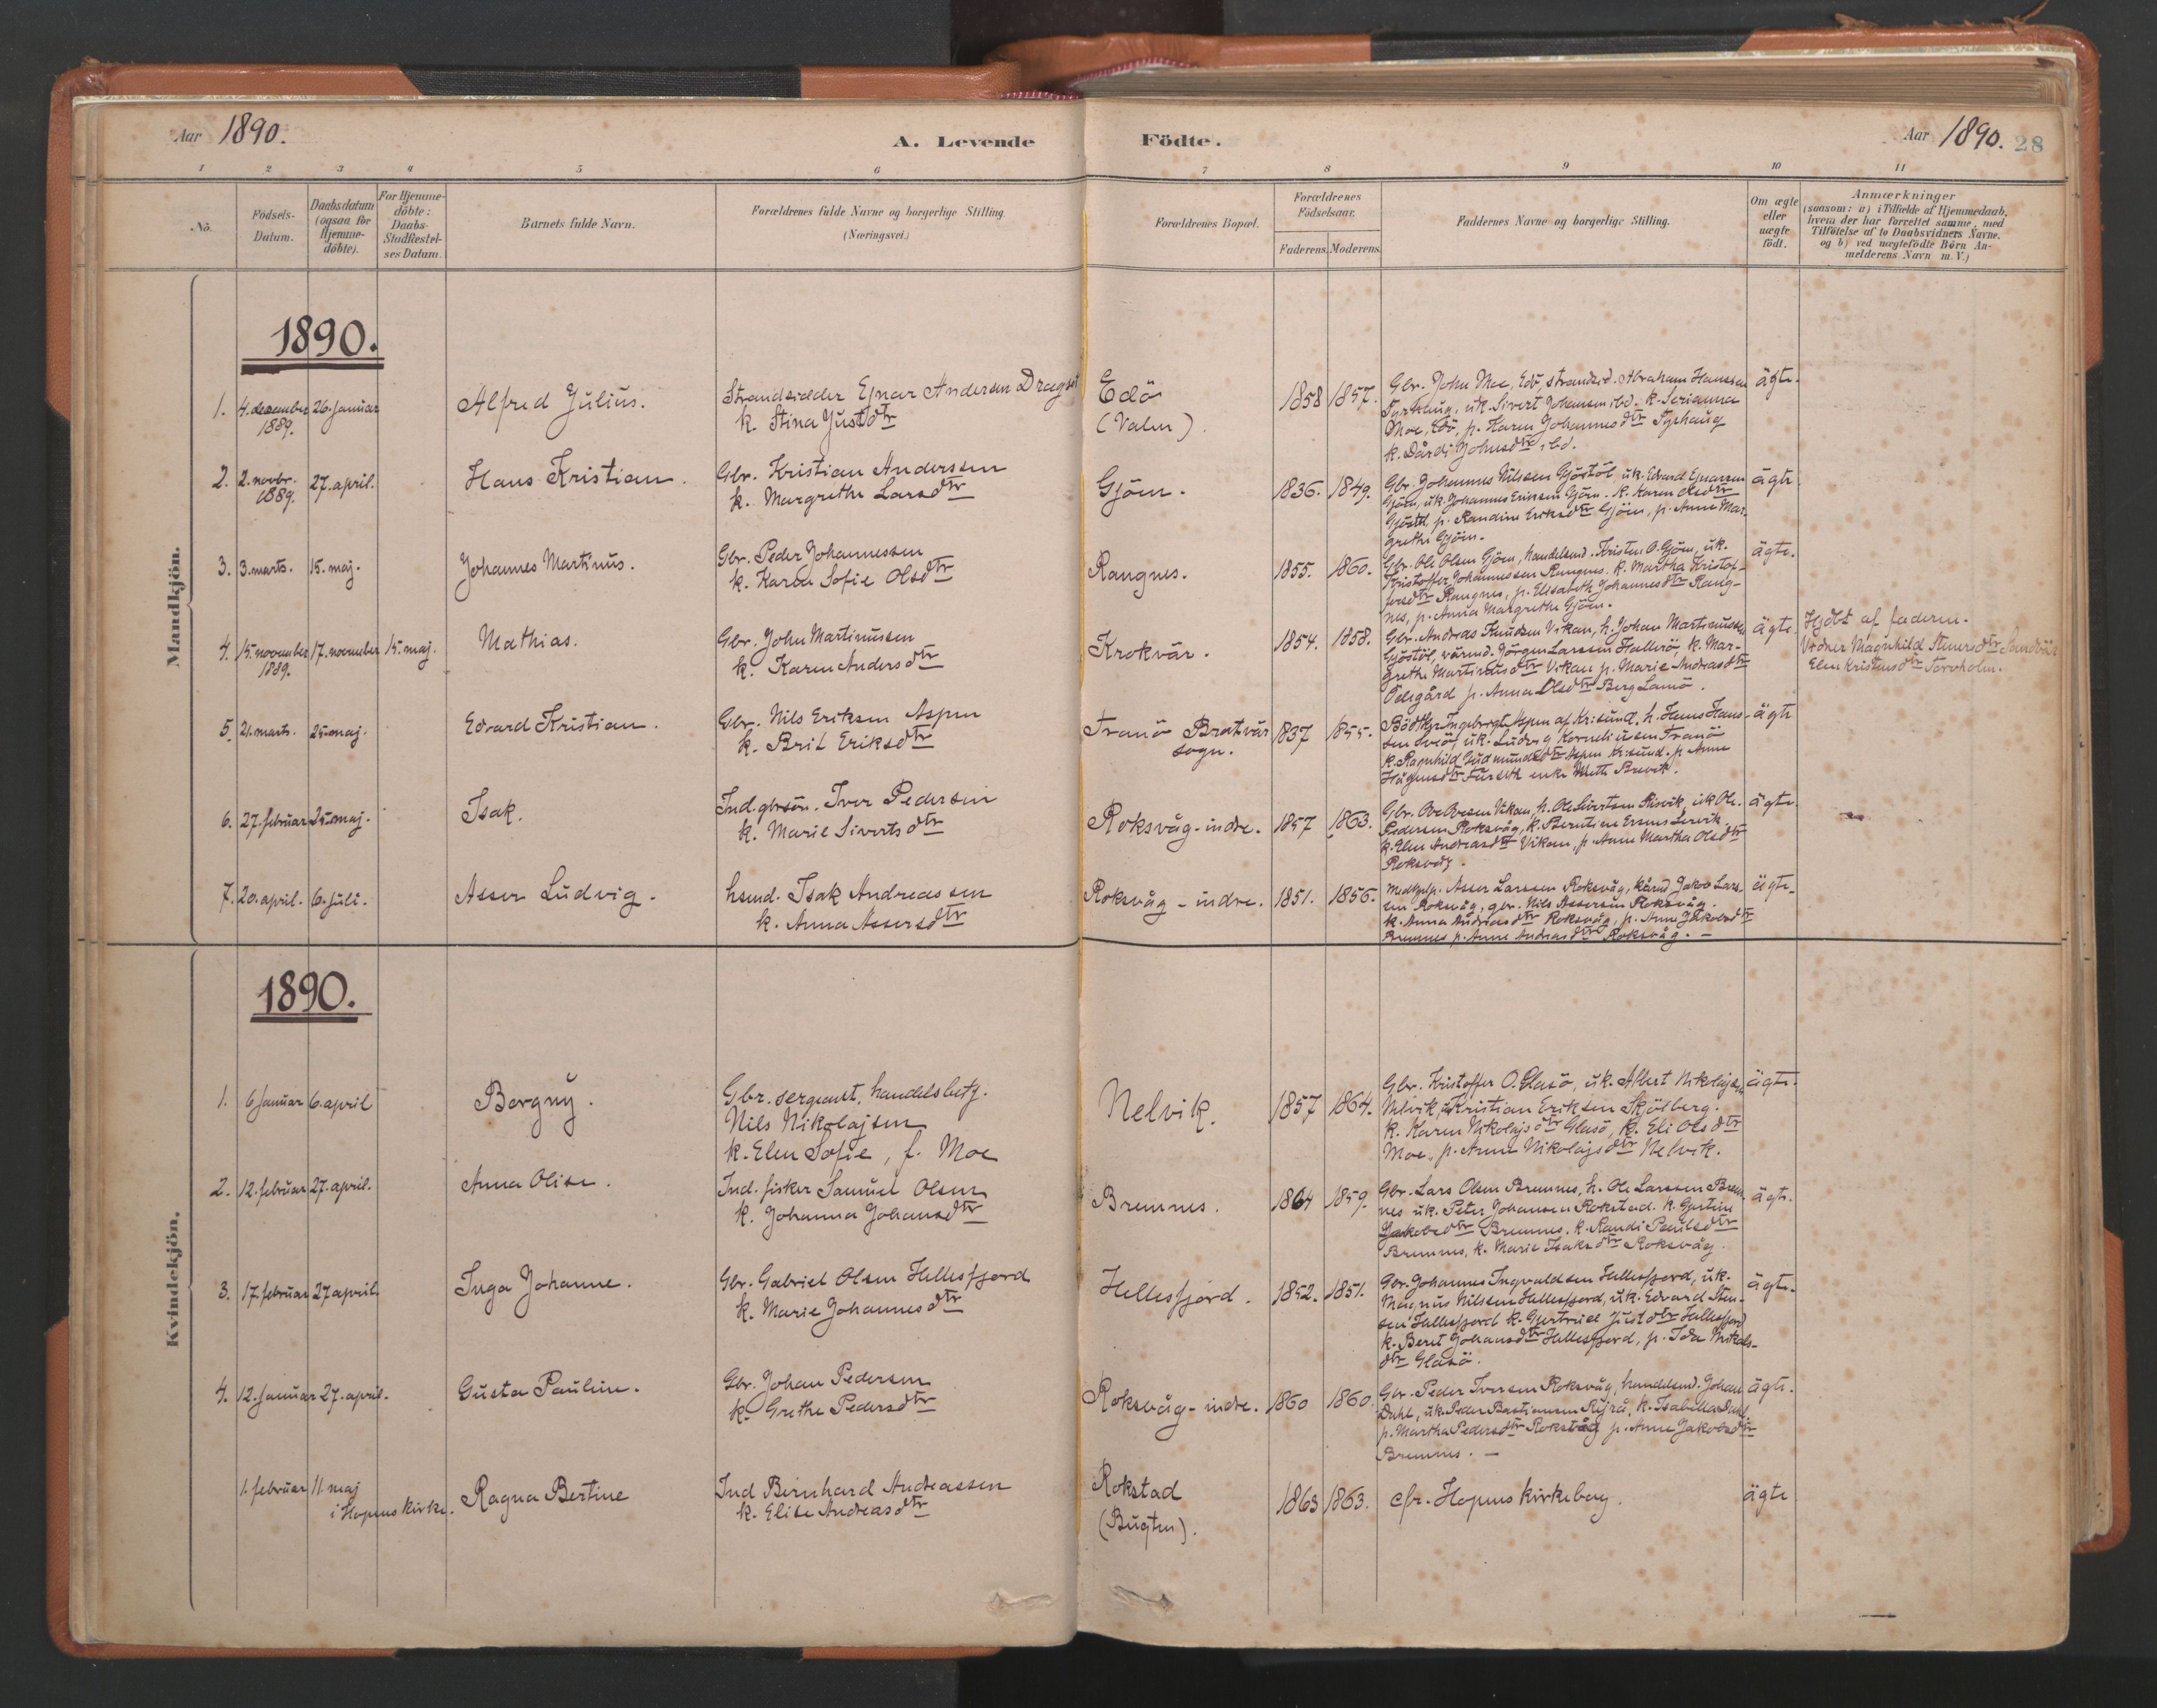 Aar 1890.
A. Levende Födte.
Aar 1890. 28
1 2 3 4 5 6 7 8 9 10 11
No.
Födsels-Datum.
Daabsdatum (ogsaa for Hjemmedöbte).
For Hjemmedöbte: Daabs-Stadfæstelses Datum.
Barnets fulde Navn.
Forældrenes fulde Navne og borgerlige Stilling. (Næringsvei.)
Forældrenes Bopæl.
Forældrenes Födselsaar.
Faderens. Moderens.
Faddernes Navne og borgerlige Stilling.
Om ægte eller uægte födt.
Anmærkninger
(saasom: a) i Tilfælde af Hjemmedaab,
hvem der har forrettet samme, med
Tilföielse af to Daabsvidners Navne,
og b) ved uægtefödte Börn An-
melderens Navn m.V.)
Mandkjön.
1890.
1. 4. december 1889. 26. januar
Alfred Julius.
Strandsidder Ejnar Andersen Dragset
k. Stina Justdtr
Edö
(Valen).
1858 1857.
Gbr. John Moe, Edö, strands. Abraham Hanssen
Tyrhaug, uk. Sivert Johansen ibd. k. Serianna
Moe, Edö, p. Karen Johannesdtr Tyrhaug
k. Dårdi Johnsdtr ibd.
ägte.
2. 2. novbr. 1889. 27. april.
Hans Kristian.
Gbr. Kristian Anderssen
k. Margrethe Larsdtr
Gjöen.
1836. 1849.
Gbr. Johannes Nilssen Gjöstöl, uk. Edvard Ejnarsen
Gjöen, uk. Johannes Eriksen Gjöen. k. Karen Olsdtr
Gjöstöl p. Randine Eriksdtr Gjöen, p. Anne Mar-
grethe Gjöen.
ägte.
3. 3. marts. 15. maj.
Johannes Martinus.
Gbr. Peder Johannessen
k. Karen Sofie Olsdtr
Rangnes.
1855. 1860.
Gbr. Ole Olsen Gjöen, handelsmd. Kristen O. Gjöen, uk.
Kristoffer Johannessen Rangnes. k. Martha Kristof-
fersdtr Rangnes, p. Elisabeth Johannesdtr Rang-
nes, p. Anna Margrethe Gjöen.
ägte.
4. 15. november 1889. 17. november 15. maj.
Mathias.
Gbr. John Martinussen
k. Karen Andersdtr
Krokvär.
1854. 1858.
Gbr. Andreas Knudsen Vikan, h. Johan Martinussen
Gjöstöl, Jörgen Larssen k. Mar-
grethe Martinusdtr Vikan p. Marie Andreasdtr
Ödegård p. Anna Olsdtr Berg
ägte.
Hjdbt af faderen.
Vidner Magnhild Stenersdtr Sandvik
Elen Kristensdtr
5. 21. marts. 25. maj.
Edvard Kristian.
Gbr. Nils Eriksen Aspen
k. Brit Eriksdtr
Tranö Bratvär
sogn.
1837 1855.
Bödker Ingebrigt Aspen af Kr.sund, h. Hans Hans-
sen uk. Ludvig Korneliusen Tranö
k. Ragnhild Gudmundsdtr Aspen Kr.sund. p. Anne
Hågensdtr Furseth enke Mette Brevik.
ägte
6. 27. februar 25. maj.
Isak.
Ind. gbrsön. Iver Pedersen
k. Marie Sivertsdtr
Roksvåg-indre.
1857 1863.
Gbr. Vikan, h. Ole Sivertsen uk Ole
Pedersen Roksvåg, k. Berntine
k. Elen Andreasdtr Vikan, p. Anne Martha Olsdtr
Roksvåg.
ägte.
7. 20. april. 6. juli.
Asser Ludvig.
hsmd. Isak Andreassen
k. Anna Assersdtr
Roksvåg - indre.
1851. 1856.
Medhjelp. Asser Larssen Roksvåg, Jakob Lars-
sen Roksvåg, gbr. Nils Assersen Roksvåg.
k. Anna Andreasdtr Roksvåg, p. Anne Jakobsdtr
Bremnes p. Anne Andreasdtr Roksvåg. -
ägte
Kvindekjön.
1890.
1. 6 januar 6. april
Borgny.
Gbr. sergeant, handelsbetj.
Nils Nikolajsen
k. Elen Sofie, f. Moe
Nelvik.
1857 1864.
Gbr. Kristoffer O. Glasö, uk. Albert Nikolajsen
Nelvik, uk. Kristian Eriksen Skjölberg.
k. Karen Nikolajsdtr Glasö, k. Eli Olsdtr
Moe, p. Anne Nikolajsdtr Nelvik.
ägte.
2. 12. februar 27. april.
Anna Olise.
Ind. fisker Samuel Olsen
k. Johanna Johansdtr
Bremnes.
1864 1859.
Gbr. Lars Olsen Bremnes, h. Ole Larssen Brem-
nes uk. Peter Johansen Rokstad. k. Gjertine
Jakobsdtr Bremnes. k. Randi Paulsdtr
Bremnes, k. Marie Isaksdtr Roksvåg.
ägte.
3. 17. februar 27 april.
Inga Johanne.
Gbr. Gabriel Olsen Hellesfjord
k. Marie Johannesdtr
Hellesfjord.
1852. 1851.
Gbr. Johannes Ingvaldsen Hellesfjord, uk.
Magnus Nilssen Hellesfjord, uk. Edvard Sten-
sen Hellesfjord k. Gjertrud Justdtr Hellesfjord
k. Berit Johansdtr Hellesfjord, p. Ida Nikolai-
dtr Glasö.
ägte.
4. 12. januar 27. april.
Gusta Pauline.
Gbr. Johan Pedersen
k. Grethe Pedersdtr
Roksvåg - indre.
1860 1860.
Gbr. Peder Iversen Roksvåg, handelsmd. Johan
Dahl, uk. Peder Bastiansen k. Isabella Dahl
p. Martha Pedersdtr Roksvåg p. Anne Jakobsdtr
Bremnes. -
ägte.
1. februar 11. maj
i Hopens kirke.
Ragna Bertine
Ind Bernhard Andreassen
k. Elise Andreasdtr
Rokstad
(Bugten).
1863 1863.
cfr. Hopens kirkebog.
ägte